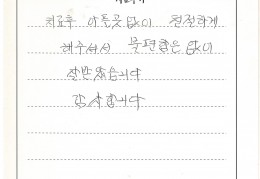 치료후 아픈곳없이 친절하게
해주셔서 불편함은 없이
잘받았습니다
감사합니다